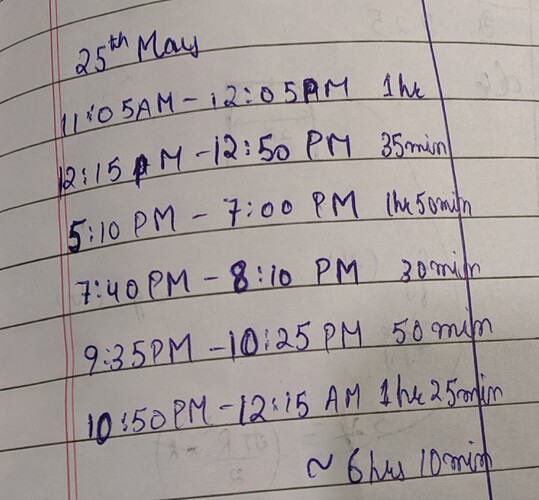 25th May
11:05AM - 12:05PM 1hr
12:15 PM - 12:50 PM 35min
5:10 PM - 7:00 PM 1hr 50min
7:40 PM - 8:10 PM 30min
9:35PM - 10:25 PM 50 min
10:50PM - 12:15 AM 1hr 25min
~ 6 hrs 10min